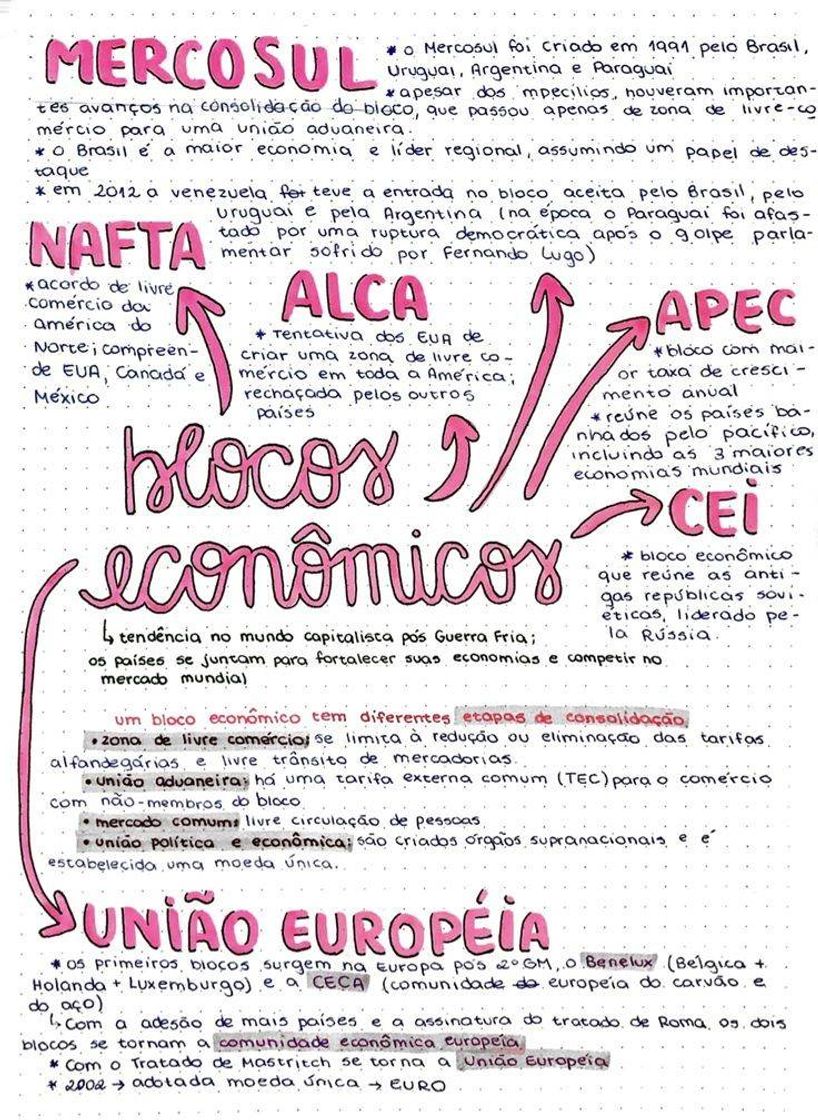 MERCOSUL
* o Mercosul foi criado em 1991 pelo Brasil,
Uruguai, Argentina e Paraguai
* apesar dos mpecílios, houveram importan-
tes avanços na consolidação do bloco, que passou apenas de zona de livre-co
mércio para uma união aduaneira.
* o Brasil é a maior economia e líder regional, assumindo um papel de des-
taque
* em 2012 a venezuela foi teve a entrada no bloco aceita pelo Brasil, pelo
uruguai e pela Argentina (na época o Paraguai foi afas-
tado por uma ruptura democrática após o golpe parla-
mentar sofrido por Fernando Lugo)
NAFTA
* acordo de livre
comércio da
américa do
Norte; compreen-
de EUA, Canadá e
México
ALCA
* Tentativa dos EUA de
criar uma zona de livre co-
mércio em toda a América;
rechaçada pelos outros
países
APEC
* bloco com mai-
or taxa de cresci-
mento anual
* reúne os países ba-
nhados pelo pacífico,
incluindo as 3 maiores
economias mundiais
CEI
* bloco econômico
que reúne as anti-
gas repúblicas sovi-
éticas, liderado pe-
la Rússia.
blocos
econômicos
↳ tendência no mundo capitalista pós Guerra Fria;
os países se juntam para fortalecer suas economias e competir no
mercado mundial
um bloco econômico tem diferentes etapas de consolidação
• zona de livre comércio; se limita à redução ou eliminação das tarifas
alfandegárias e livre trânsito de mercadorias.
• união aduaneira; há uma tarifa externa comum (TEC) para o comércio
com não-membros do bloco
• mercado comum; livre circulação de pessoas
• união política e econômica; são criados órgãos supranacionais e é
estabelecida uma moeda única.
UNIÃO EUROPÉIA
* os primeiros blocos surgem na Europa pós 2ª GM, o Benelux (Bélgica +
Holanda + Luxemburgo) e a CECA (comunidade do europeia do carvão e
do aço)
↳ Com a adesão de mais países e a assinatura do tratado de Roma os dois
blocos se tornam a comunidade econômica europeia
* Com o Tratado de Mastritch se torna a União Europeia
* 2002 → adotada moeda única → EURO